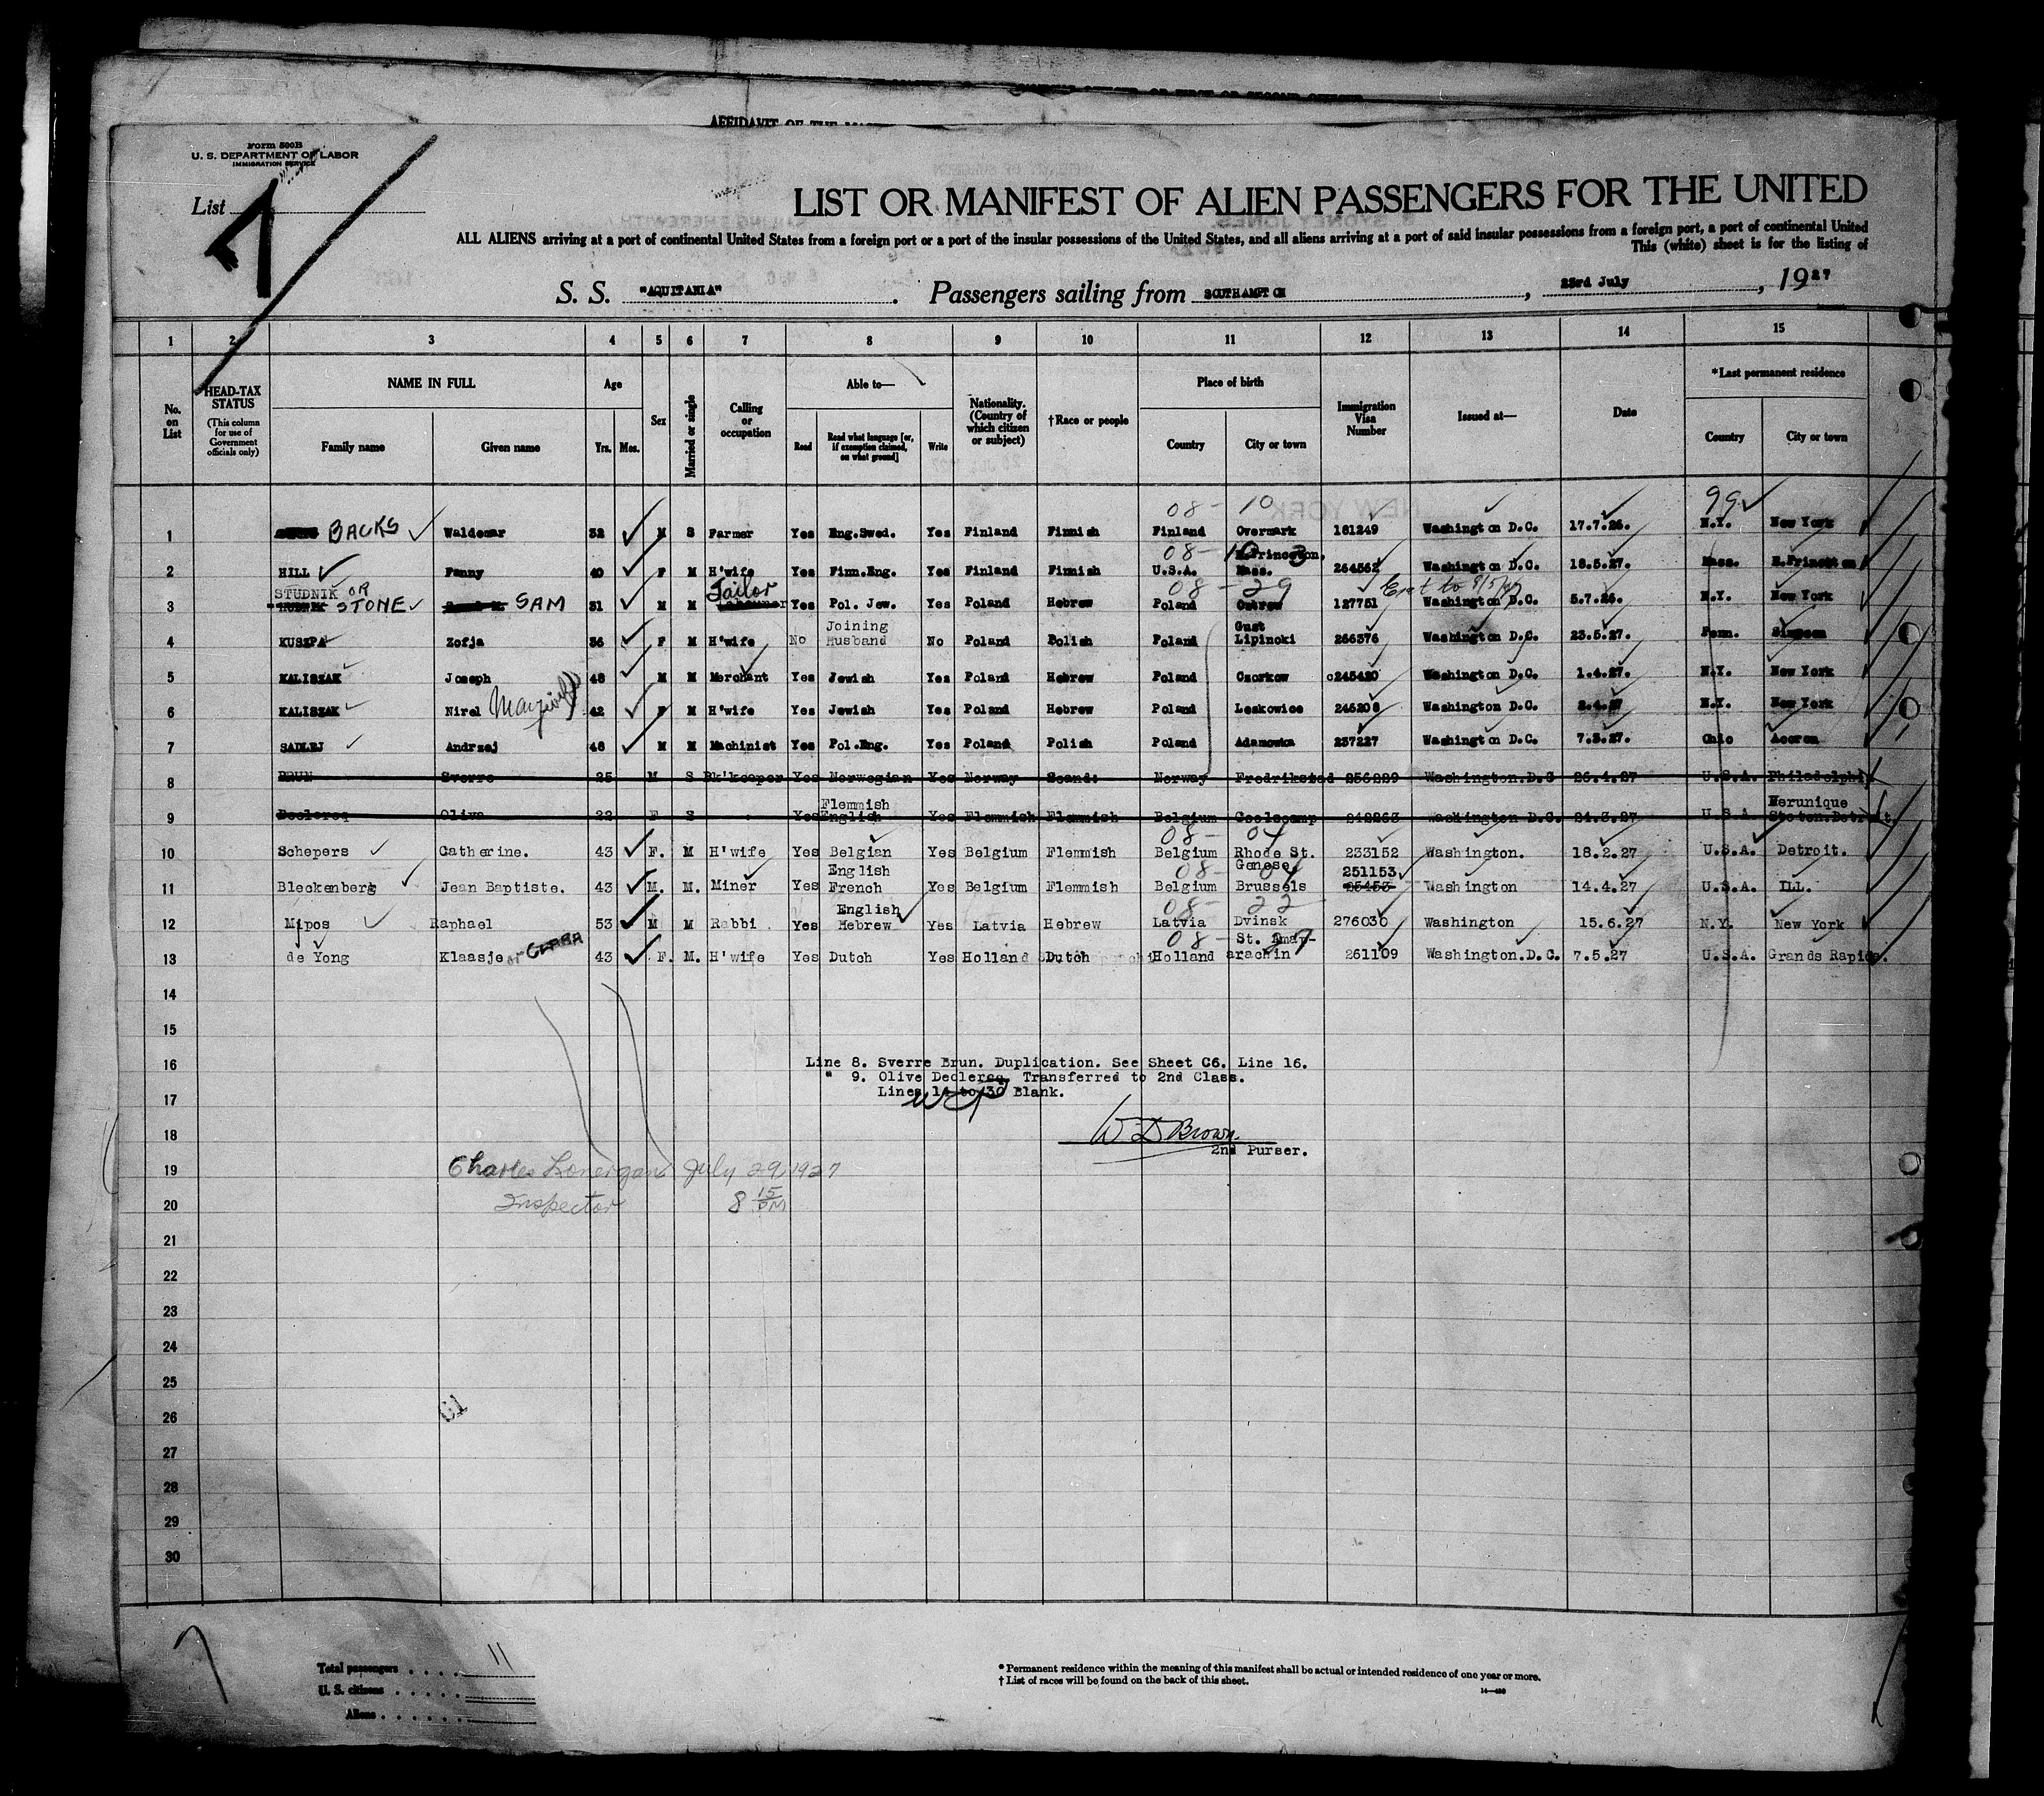 AFFIDAVIT OF THE
Form 500B
U. S. DEPARTMENT OF LABOR
IMMIGRATION SERVICE
List 7
LIST OR MANIFEST OF ALIEN PASSENGERS FOR THE UNITED
ALL ALIENS arriving at a port of continental United States from a foreign port or a port of the insular possessions of the United States, and all aliens arriving at a port of said insular possessions from a foreign port, a port of continental United
This (white) sheet is for the listing of
S. S. "AQUITANIA". Passengers sailing from SOUTHAMPTON, 23rd July, 1927
1 2 3 4 5 6 7 8 9 10 11 12 13 14 15
No. on List
HEAD-TAX STATUS
(This column for use of Government officials only)
NAME IN FULL
Family name Given name
Age
Yrs. Mos.
Sex
Married or single
Calling or occupation
Able to—
Read Read what language [or, if exemption claimed, on what ground] Write
Nationality. (Country of which citizen or subject)
†Race or people
Place of birth
Country City or town
Immigration Visa Number
Issued at—
Date
*Last permanent residence
Country City or town
08- 10 99
1 BACKS Waldemar 32 M S Farmer Yes Eng.Swed. Yes Finland Finnish Finland Overmark 181249 Washington D.C. 17.7.26. N.Y. New York
08-
2 HILL Fanny 40 F M H'wife Yes Finn.Eng. Yes Finland Finnish U.S.A. E.Princeton, Mass. 264562 Washington D.C. 18.5.27. Mass. E.Princeton
08-29
3 STUDNIK OR STONE SAM 31 M M Tailor Yes Pol. Jew. Yes Poland Hebrew Poland Ostrow 127751 Washington D.C. 5.7.26. N.Y. New York
4 KUSZPA Zofja 36 F M H'wife No Joining Husband No Poland Polish Poland Gust Lipinoki 266376 Washington D.C. 23.5.27. Penn. Simpson
5 KALISZAK Joseph 48 M M Merchant Yes Jewish Yes Poland Hebrew Poland Czorkow c245420 Washington D.C. 1.4.27. N.Y. New York
6 KALISZAK Nirel 42 F M H'wife Yes Jewish Yes Poland Hebrew Poland Laskowice 245208 Washington D.C. 2.4.27 N.Y. New York
7 SADLEJ Andrzej 48 M M Machinist Yes Pol.Eng. Yes Poland Polish Poland Adamowka 237227 Washington D.C. 7.3.27. Ohio Accron
8 BRUN Sverre 25 M S Bk'keeper Yes Norwegian Yes Norway Scand: Norway Fredrikstad 256229 Washington.D.C 26.4.27 U.S.A. Philadelphia
9 Declercq Oliva 22 F S Yes Flemmish English Yes Flemmish Flemmish Belgium Coolscamp 242263 Washington D.C. 24.3.27 U.S.A.
08- 04
10 Schepers Catherine. 43 F. M H'wife Yes Belgian Yes Belgium Flemmish Belgium Rhode St. Genese 233152 Washington. 18.2.27 U.S.A. Detroit.
08- 04
11 Bleckenberg Jean Baptiste. 43 M. M. Miner Yes English French Yes Belgium Flemmish Belgium Brussels 251153 25453 Washington 14.4.27 U.S.A. ILL.
08- 22
12 Mipos Raphael 53 M M Rabbi Yes English Hebrew Yes Latvia Hebrew Latvia Dvinsk 276030 Washington 15.6.27 N.Y. New York
08-27
13 de Yong Klaasje or CLARA 43 F. M. H'wife Yes Dutch Yes Holland Dutch Holland St. Anay-arachin 261109 Washington.D.C. 7.5.27 U.S.A. Grands Rapids.
14
15
16 Line 8. Sverre Brun. Duplication. See Sheet C6. Line 16.
" 9. Olive Declercq. Transferred to 2nd Class.
17 Lines 14 to 30 Blank.
18 W D Brown.
2nd Purser.
19 Charles Lonergan July 29, 1927
20 Inspector 8 15 PM
21
22
23
24
25
26
27
28
29
30
Total passengers . . . . 11
U. S. citizens . . . . .
Aliens . . . . . . .
* Permanent residence within the meaning of this manifest shall be actual or intended residence of one year or more.
† List of races will be found on the back of this sheet.